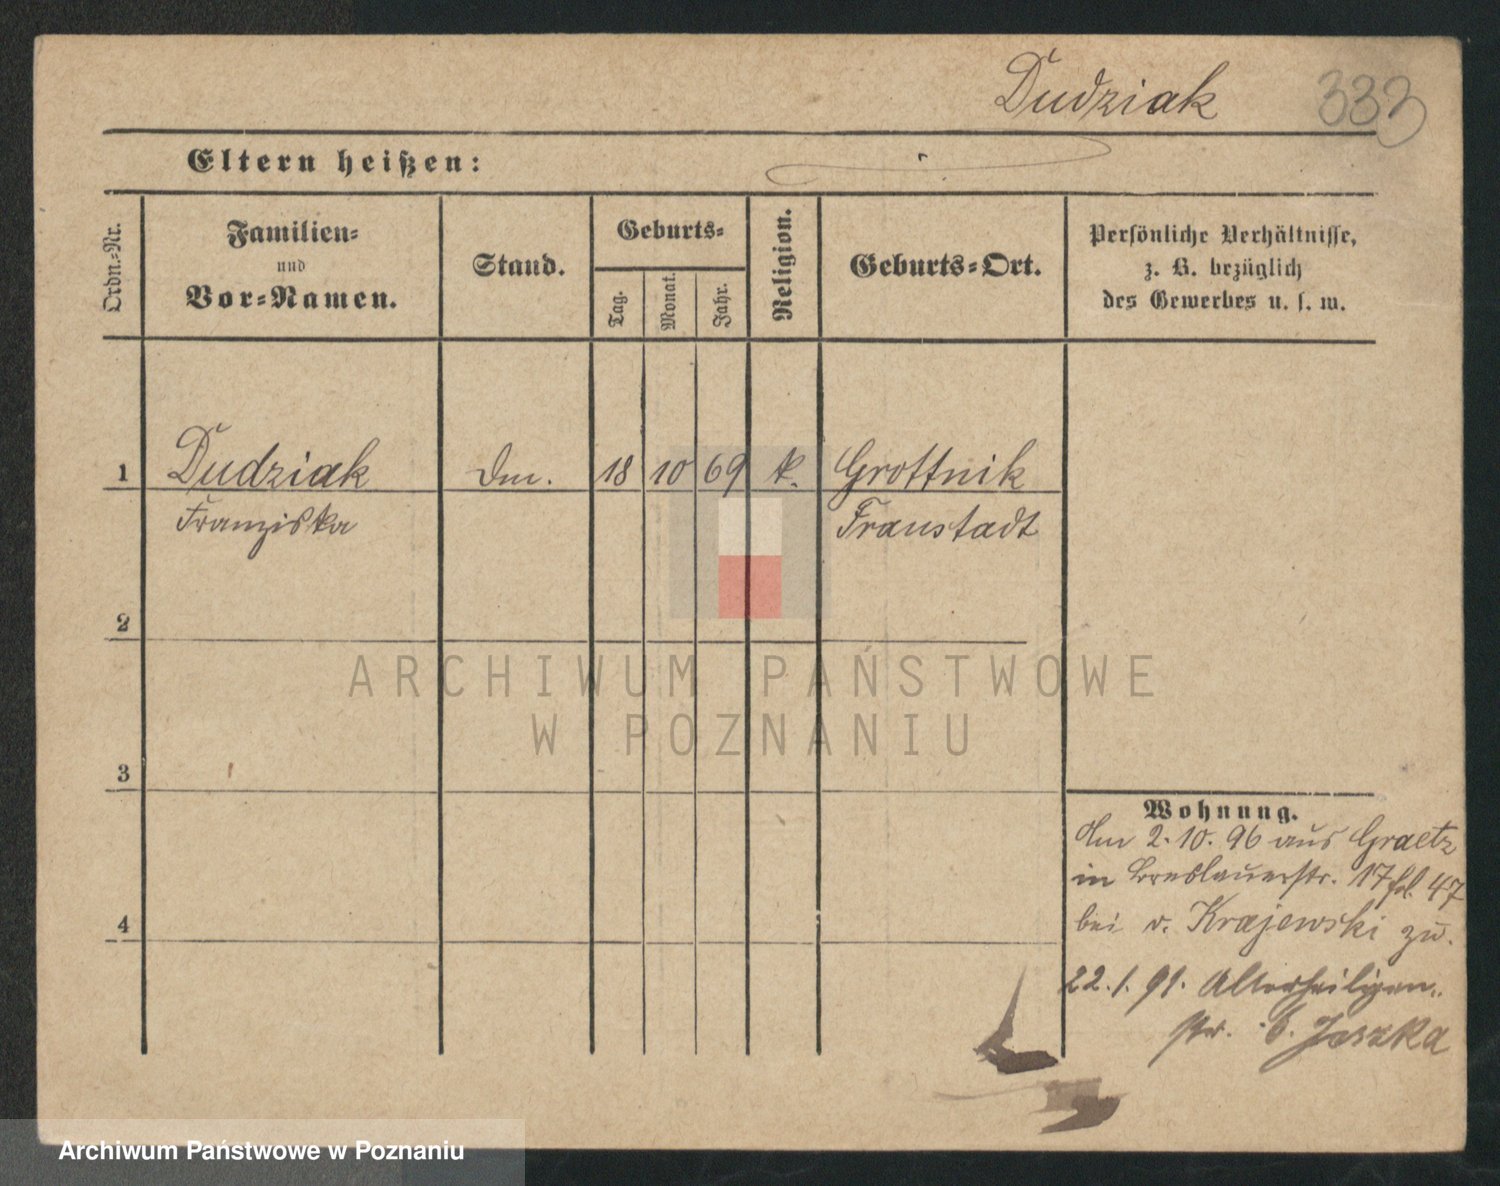 Dudziak 333
Eltern heißen:
Ordn.-Nr.
Familien-
und
Vor-Namen.
Stand.
Geburts-
Tag.
Monat.
Jahr.
Religion.
Geburts-Ort.
Persönliche Verhältnisse,
z. B. bezüglich
des Gewerbes u. s. w.
1 Dudziak Dm. 18 10 69 k. Grottnik
Franziska Fraustadt
2
ARCHIWUM PAŃSTWOWE
W POZNANIU
3
Wohnung.
Am 2. 10. 96 aus Graetz
in Breslauerstr. 17 fol. 47
bei v. Krajewski zu.
4
22. 1. 91. Allerheiligen-
str. 6. Jeszka
Archiwum Państwowe w Poznaniu